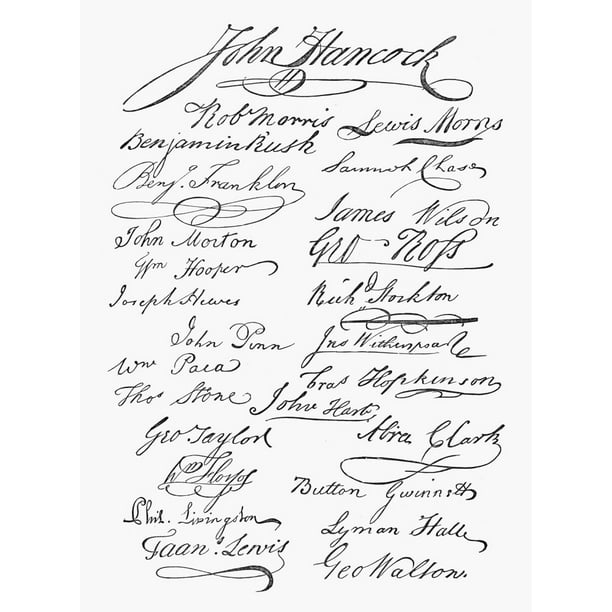 John Hancock
Robt Morris
Lewis Morris
Benjamin Rush
Samuel Chase
Benj. Franklin
James Wilson
John Morton
Geo Ross
Wm Hooper
Joseph Hewes
Richd Stockton
John Penn
Jno Witherspoon
Wm Paca
Fras Hopkinson
Thos Stone
John Hart
Geo Taylor
Abra Clark
Wm Floyd
Button Gwinnett
Phil. Livingston
Lyman Hall
Fran.s Lewis
Geo Walton.